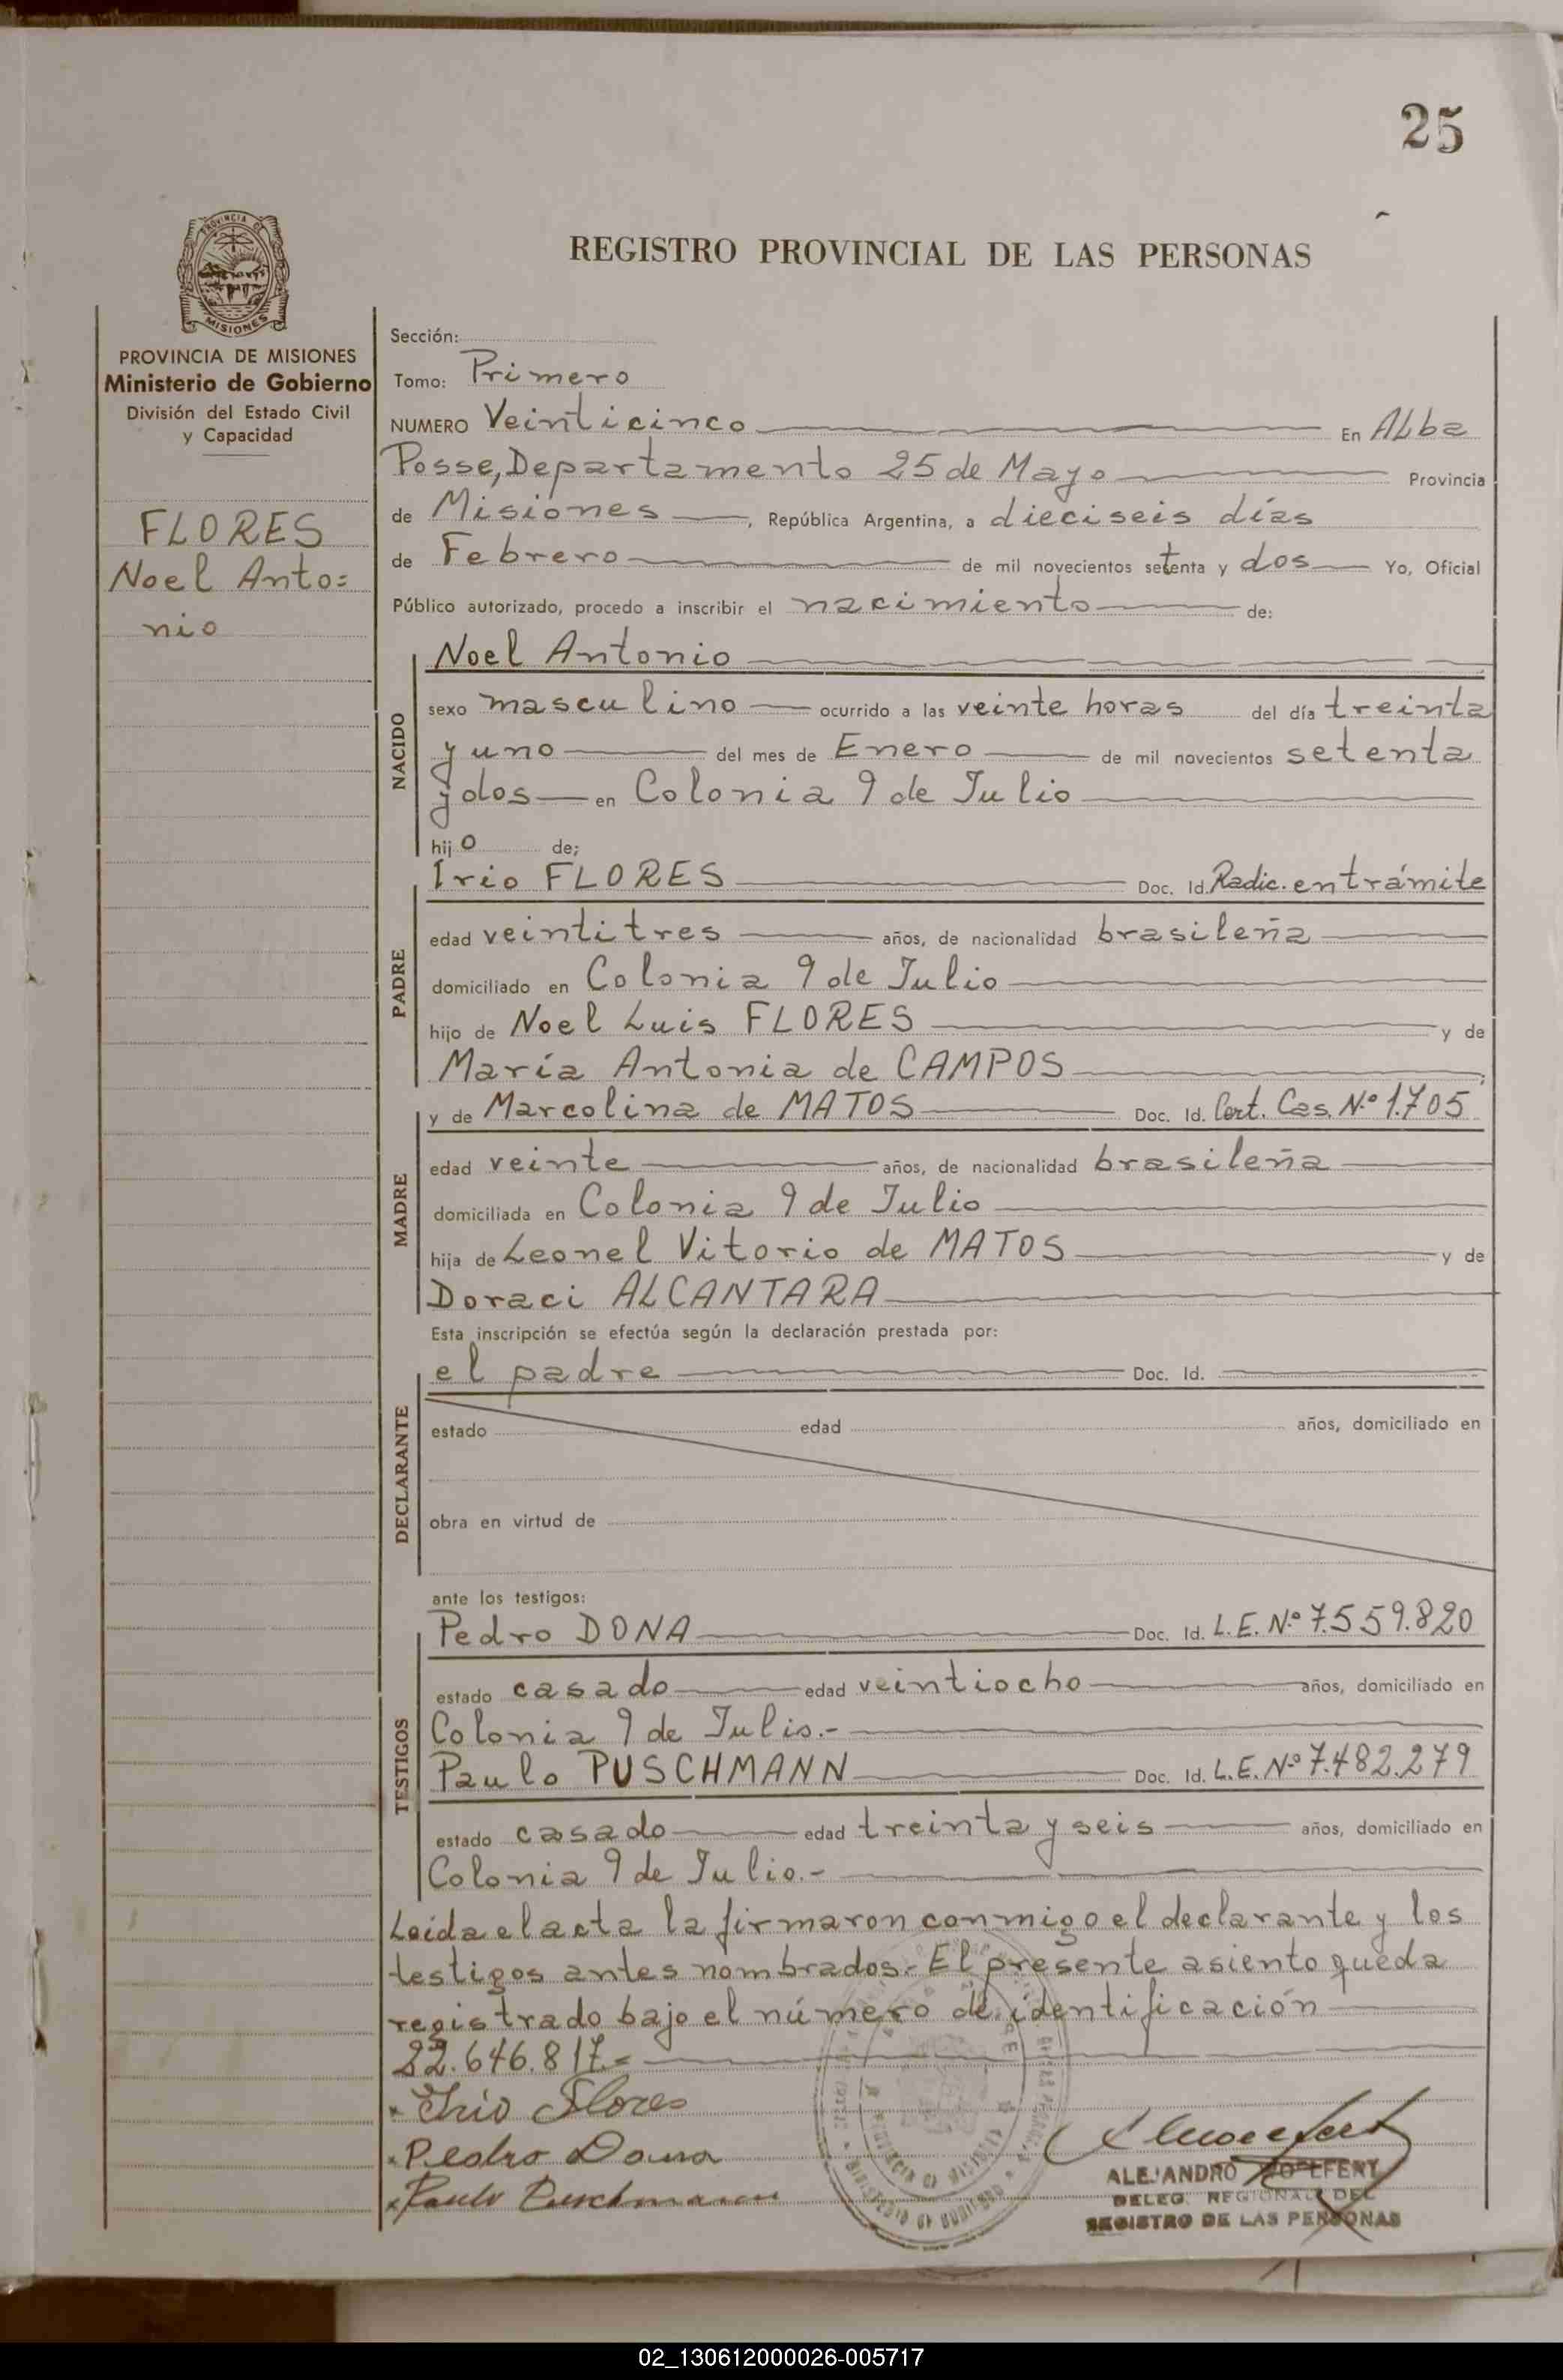 25
REGISTRO PROVINCIAL DE LAS PERSONAS
PROVINCIA DE MISIONES
Ministerio de Gobierno
División del Estado Civil
y Capacidad
FLORES
Noel Anto=
nio
Sección:
Tomo: Primero
NUMERO Veinticinco En Alba
Posse, Departamento 25 de Mayo Provincia
de Misiones, República Argentina, a dieciseis días
de Febrero de mil novecientos setenta y dos Yo, Oficial
Público autorizado, procedo a inscribir el nacimiento de:
NACIDO
Noel Antonio
sexo masculino ocurrido a las veinte horas del día treinta
y uno del mes de Enero de mil novecientos setenta
y dos en Colonia 9 de Julio
hijo de;
PADRE
Irio FLORES Doc. Id. Radic. en trámite
edad veintitres años, de nacionalidad brasileña
domiciliado en Colonia 9 de Julio
hijo de Noel Luis FLORES y de
María Antonia de CAMPOS;
MADRE
y de Marcolina de MATOS Doc. Id. Cert. Cas. N.º 1.705
edad veinte años, de nacionalidad brasileña
domiciliada en Colonia 9 de Julio
hija de Leonel Vitorio de MATOS y de
Doraci ALCANTARA
Esta inscripción se efectúa según la declaración prestada por:
DECLARANTE
el padre Doc. Id.
estado edad años, domiciliado en
obra en virtud de
ante los testigos:
TESTIGOS
Pedro DONA Doc. Id. L.E. Nº 7.559.820
estado casado edad veintiocho años, domiciliado en
Colonia 9 de Julio.-
Paulo PUSCHMANN Doc. Id. L.E. Nº 7.482.279
estado casado edad treinta y seis años, domiciliado en
Colonia 9 de Julio.-
Leída el acta la firmaron conmigo el declarante y los
testigos antes nombrados.- El presente asiento queda
registrado bajo el número de identificación
22.646.817.=
Irio Flores
Pedro Dona
Paulo Puschmann
ALEJANDRO
DELEG. REGIONAL DEL
REGISTRO DE LAS PERSONAS
02_130612000026-005717